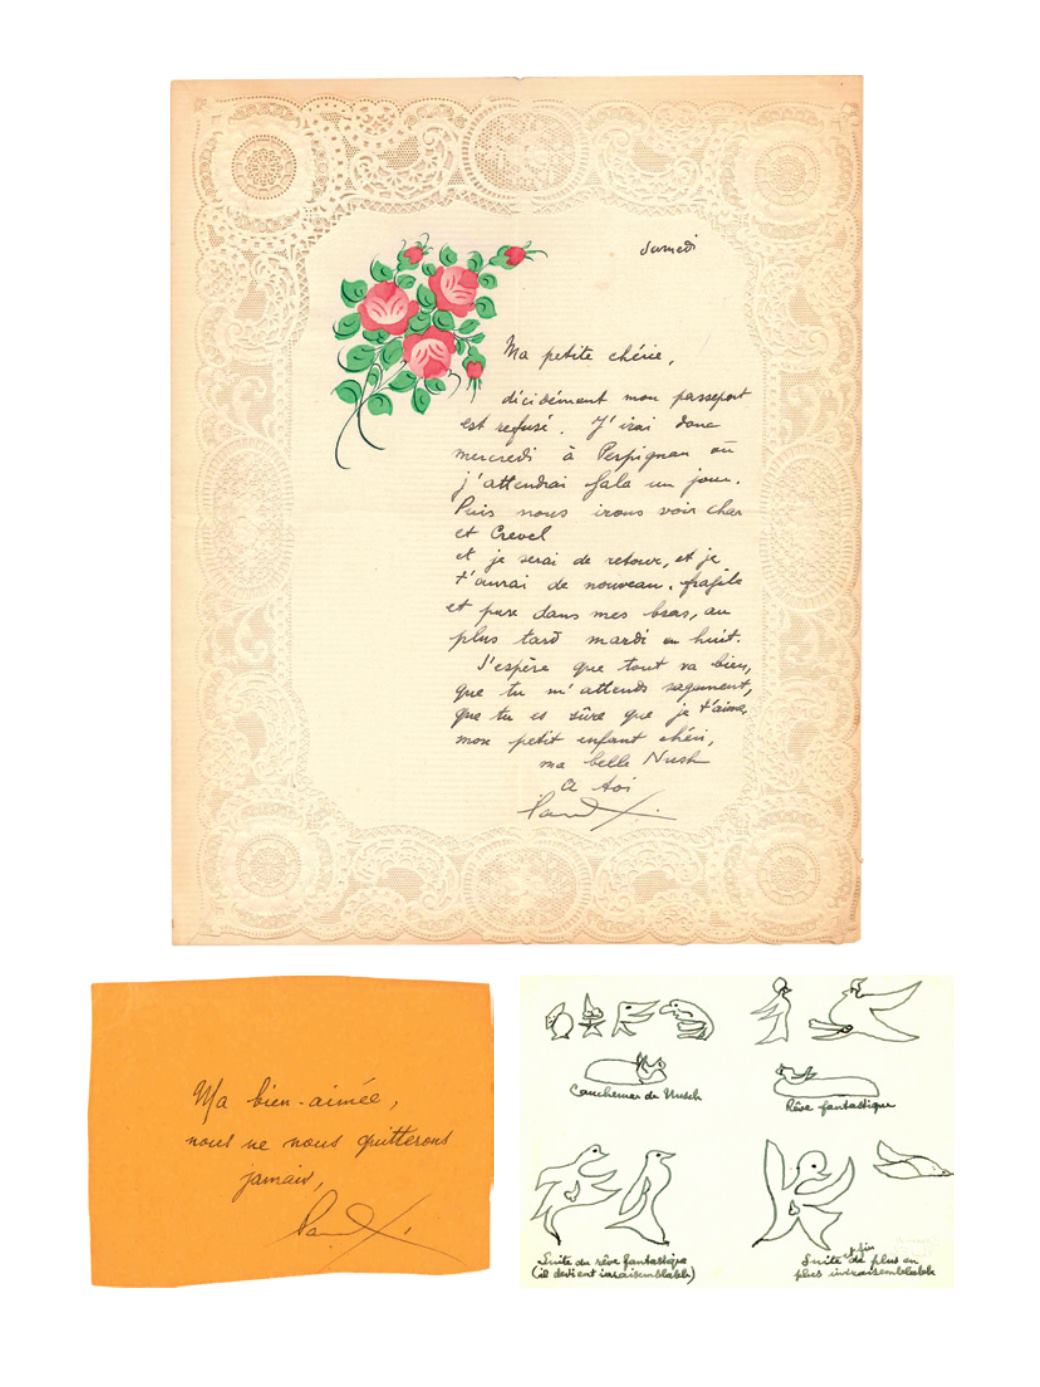 Samedi
Ma petite chérie,
décidément mon passeport
est refusé. J'irai donc
mercredi à Perpignan où
j'attendrai Gala un jour.
Puis nous irons voir Char
et Crevel
et je serai de retour, et je
t'aurai de nouveau, fragile
et pure dans mes bras, au
plus tard mardi en huit.
J'espère que tout va bien,
que tu m'attends sagement,
que tu es sûre que je t'aime,
mon petit enfant chéri,
ma belle Nush
A toi
Paul
Ma bien-aimée,
nous ne nous quitterons
jamais,
Paul
Cauchemar de Nusch
Rêve fantastique
Suite du rêve fantastique
(il devient invraisemblable)
Suite et fin de plus en
plus invraisemblable